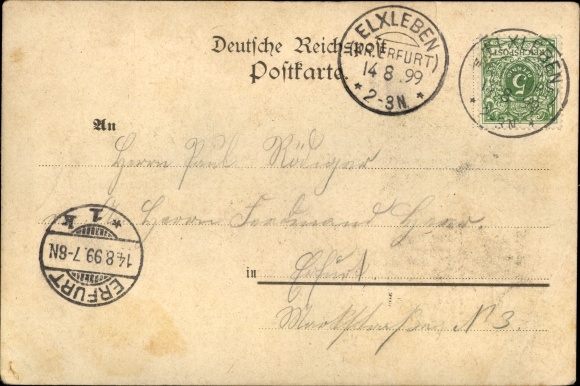 Deutsche Reichspost
Postkarte.
ELXLEBEN
(KR. ERFURT)
14 8 99
* 2-3N. *
ELXLEBEN
5
An
Herrn Paul Rödiger
Herrn Ferdinand
in Erfurt
Marktstraße N 3.
* 1 k
14.8.99.7-8N.
ERFURT